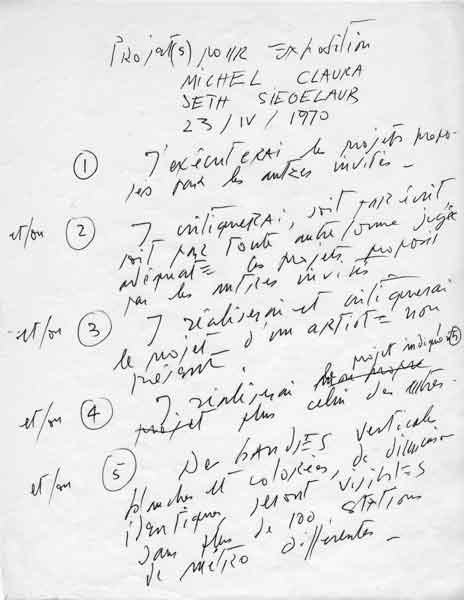 PROJET(S) POUR EXPOSITION
MICHEL CLAURA
SETH SIEGELAUB
23/IV/1970
① J'EXÉCUTERAI les projets propo-
sés par les autres invités —
et/ou ② J critiquerai, soit par écrit
soit par toute autre forme jugée
adéquate les projets proposés
par les autres invités
et/ou ③ J réaliserai et critiquerai
le projet d'un artiste non
présent.
projet indiqué (5)
et/ou ④ J réaliserai mon propre
projet plus celui des autres.
et/ou ⑤ De BANDES verticales
blanches et colorées, de dimension
identiques seront visibles
dans plus de 100 stations
de métro différentes —